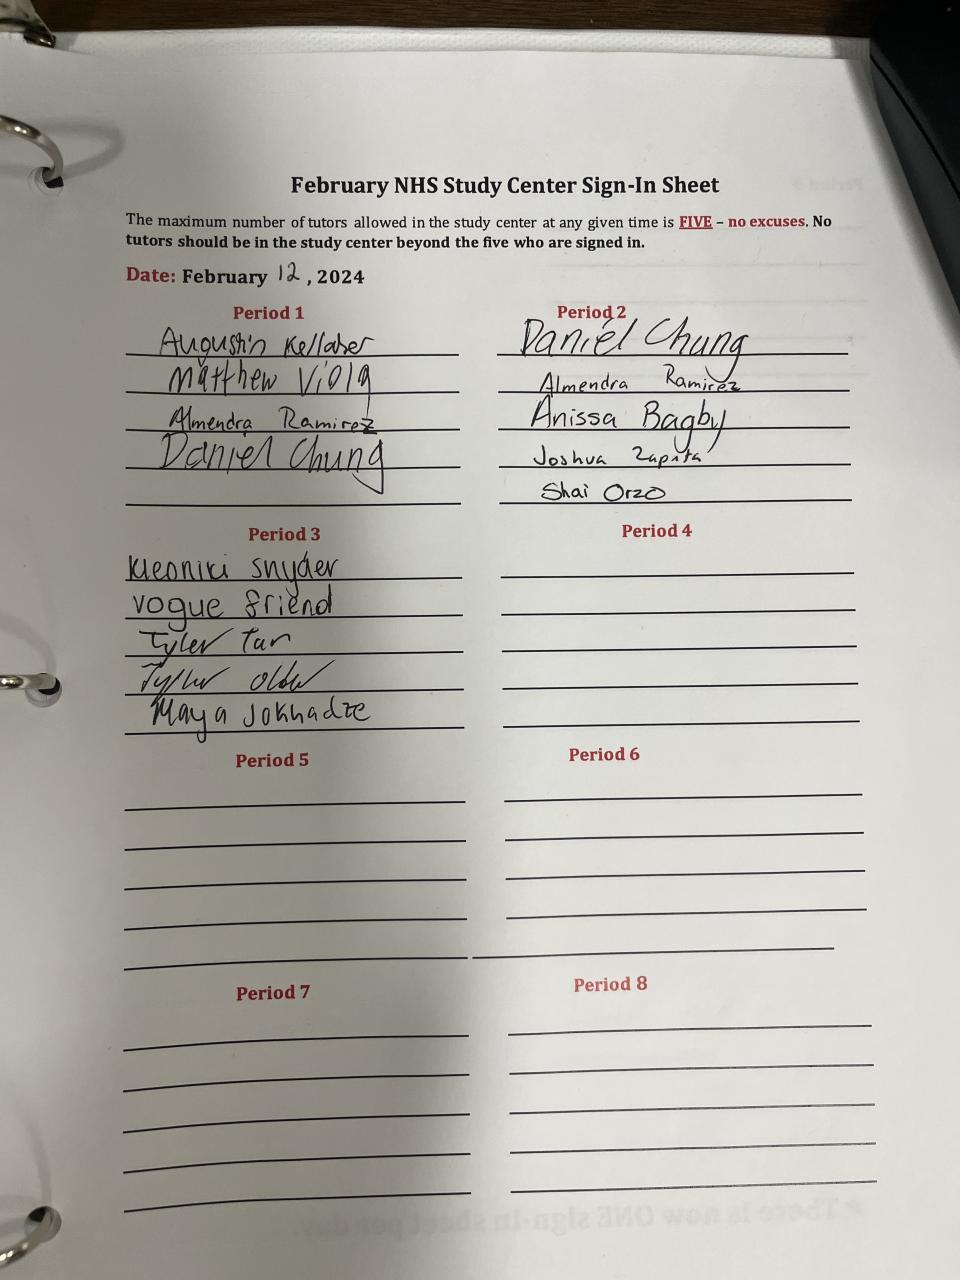 February NHS Study Center Sign-In Sheet
The maximum number of tutors allowed in the study center at any given time is FIVE – no excuses. No
tutors should be in the study center beyond the five who are signed in.
Date: February 12, 2024
Period 1
Augustin Kellaher
Matthew Viola
Almendra Ramirez
Daniel Chung
Period 2
Daniel Chung
Almendra Ramirez
Anissa Bagby
Joshua Zapata
Shai Orzo
Period 3
Kleoniki Snyder
vogue friend
Tyler Tan
Tyler
Maya Jokhadze
Period 4
Period 5
Period 6
Period 7
Period 8